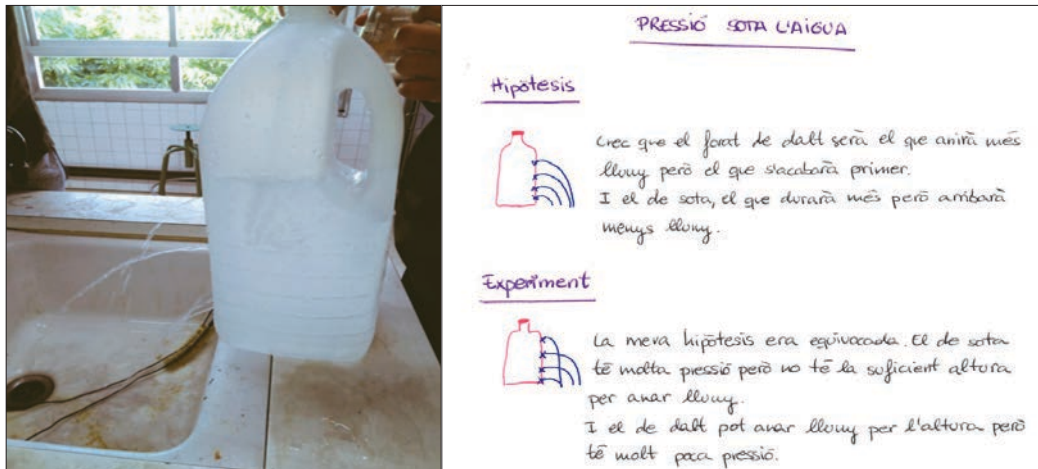 PRESSIÓ SOTA L'AIGUA
Hipòtesis
Crec que el forat de dalt serà el que anirà més
lluny però el que s'acabarà primer.
I el de sota, el que durarà més però arribarà
menys lluny.
Experiment
La meva hipòtesis era equivocada. El de sota
té molta pressió però no té la suficient altura
per anar lluny.
I el de dalt pot anar lluny per l'altura però
té molt poca pressió.